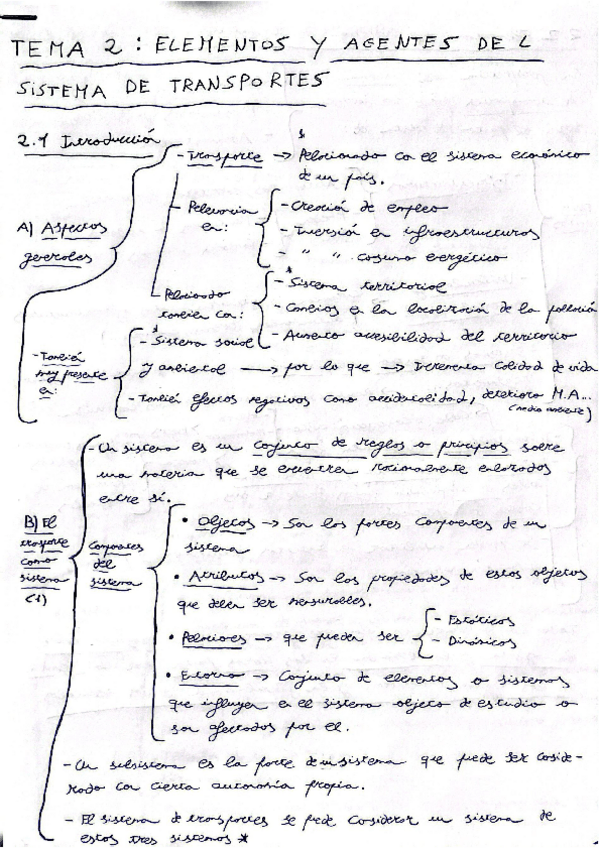 TEMA 2: ELEMENTOS Y AGENTES DEL
SISTEMA DE TRANSPORTES
2.1 Introducción
A) Aspectos
generales
- Transporte → Relacionado con el sistema económico
de un país.
- Relevancia
en:
- Creación de empleo
- Inversión en infraestructuras
- " " consumo energético
- Relacionado
también con:
- Sistema territorial
- Cambios en la localización de la población
- Aumento accesibilidad del territorio
- También
muy presente
en:
- Sistema social
y ambiental → por lo que → Incrementa calidad de vida
- También efectos negativos como accidentalidad, deterioro M.A...
(medio ambiente)
B) El
transporte
como
sistema
(1)
- Un sistema es un conjunto de reglas o principios sobre
una materia que se encuentran racionalmente enlazados
entre sí.
Componentes
del
sistema
• Objetos → Son las partes componentes de un
sistema
• Atributos → Son las propiedades de estos objetos
que deben ser mensurables.
• Relaciones → que pueden ser
- Estáticos
- Dinámicos
• Entorno → Conjunto de elementos o sistemas
que influyen en el sistema objeto de estudio o
son afectados por el.
- Un subsistema es la parte de un sistema que puede ser conside-
rado con cierta autonomía propia.
- El sistema de transportes se puede considerar un sistema de
estos tres sistemas *